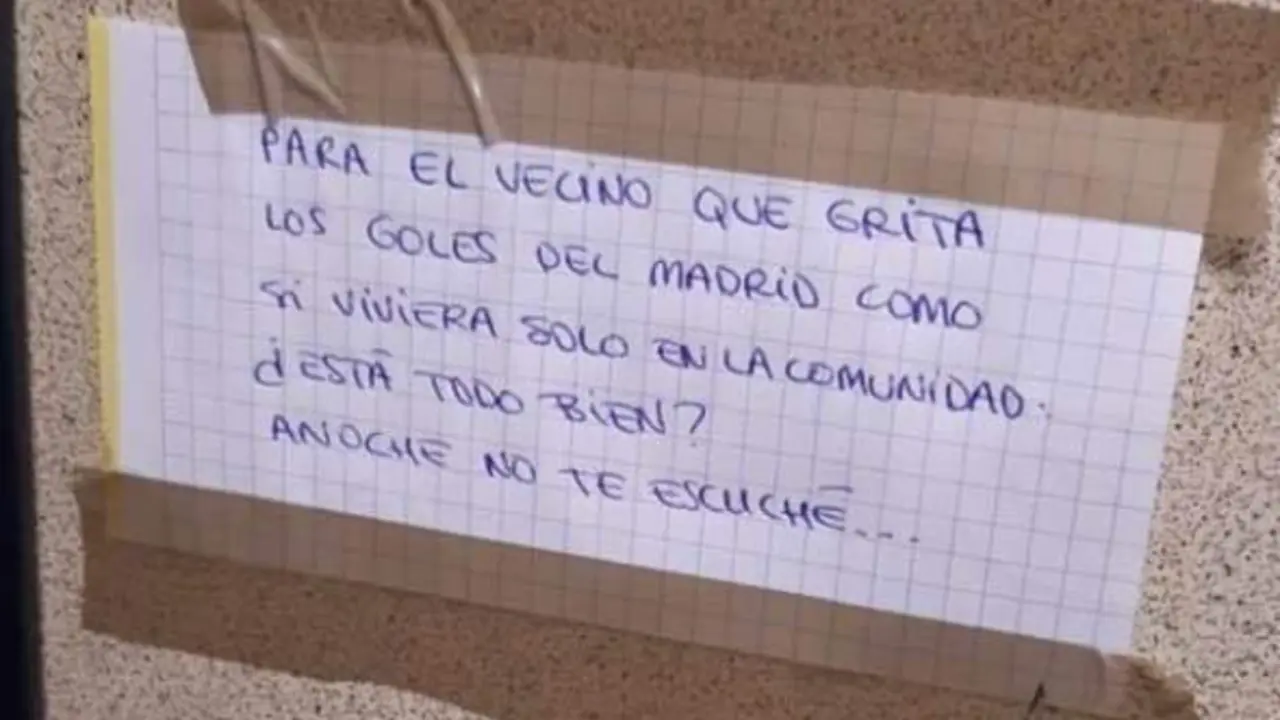 PARA EL VECINO QUE GRITA
LOS GOLES DEL MADRID COMO
SI VIVIERA SOLO EN LA COMUNIDAD.
¿ESTÁ TODO BIEN?
ANOCHE NO TE ESCUCHÉ...